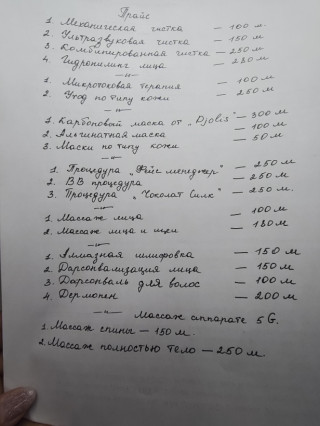 Прайс
1. Механическая чистка — 100 м.
2. Ультразвуковая чистка — 150 м
3. Комбинированная чистка — 250 м
4. Гидропилинг лица — 250 м
—"—
1. Микротоковая терапия — 100 м
2. Уход по типу кожи — 250 м
—"—
1. Карбоновая маска от „Djolis" — 300 м
2. Альгинатная маска — 100 м
3. Маски по типу кожи — 50 м
1. Процедура „Фейс менеджер" — 250 м
2. BB процедура — 250 м
3. Процедура „Чоколат Силк" — 250 м.
1. Массаж лица — 100 м
2. Массаж лица и шеи — 150 м
1. Алмазная шлифовка — 150 м
2. Дарсонвализация лица — 150 м
3. Дарсонваль для волос — 100 м
4. Дермопен — 200 м
—"— Массаж аппарате 5 G.
1. Массаж спины — 150 м.
2. Массаж полностью тело — 250 м.